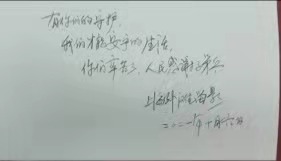 有你们的守护，
我们才能安宁的生活，
你们辛苦了，人民感谢子弟兵
二〇二一年十月六日